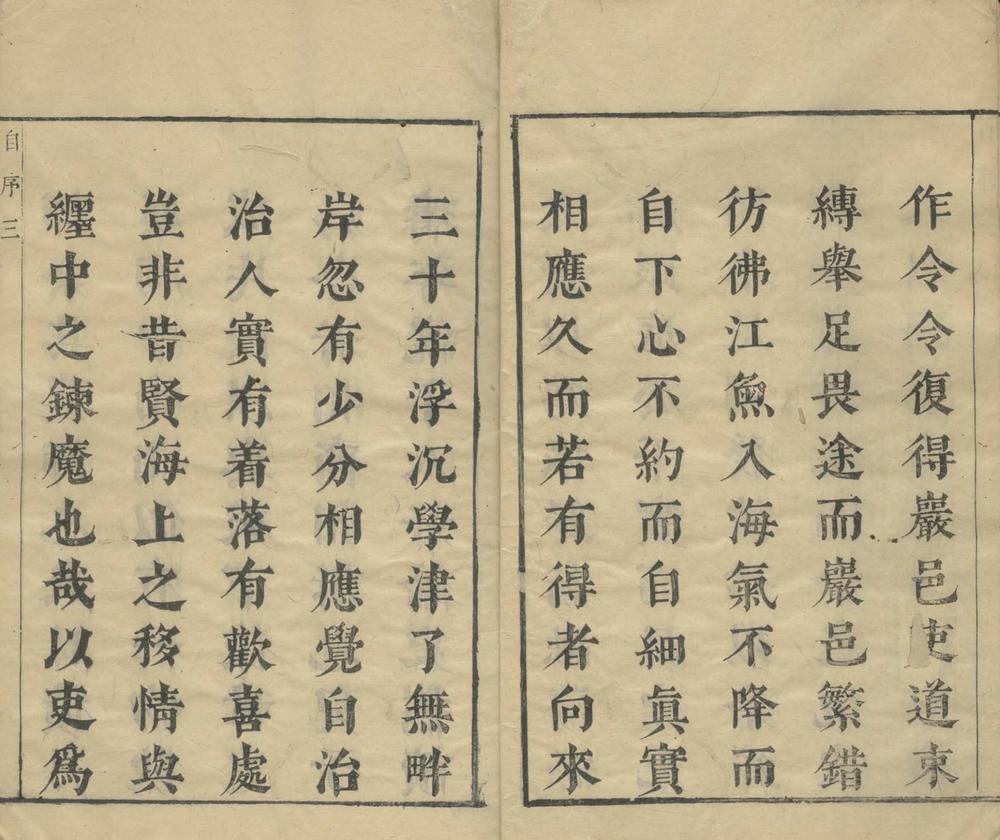 作令令復得嚴邑吏道束
縛舉足畏途而嚴邑繁錯
彷彿江魚入海氣不降而
自下心不約而自細眞實
相應久而若有得者向來
三十年浮沉學津了無畔
岸忽有少分相應覺自治
治人實有着落有歡喜處
豈非昔賢海上之移情與
纏中之鍊魔也哉以吏爲
自序 三